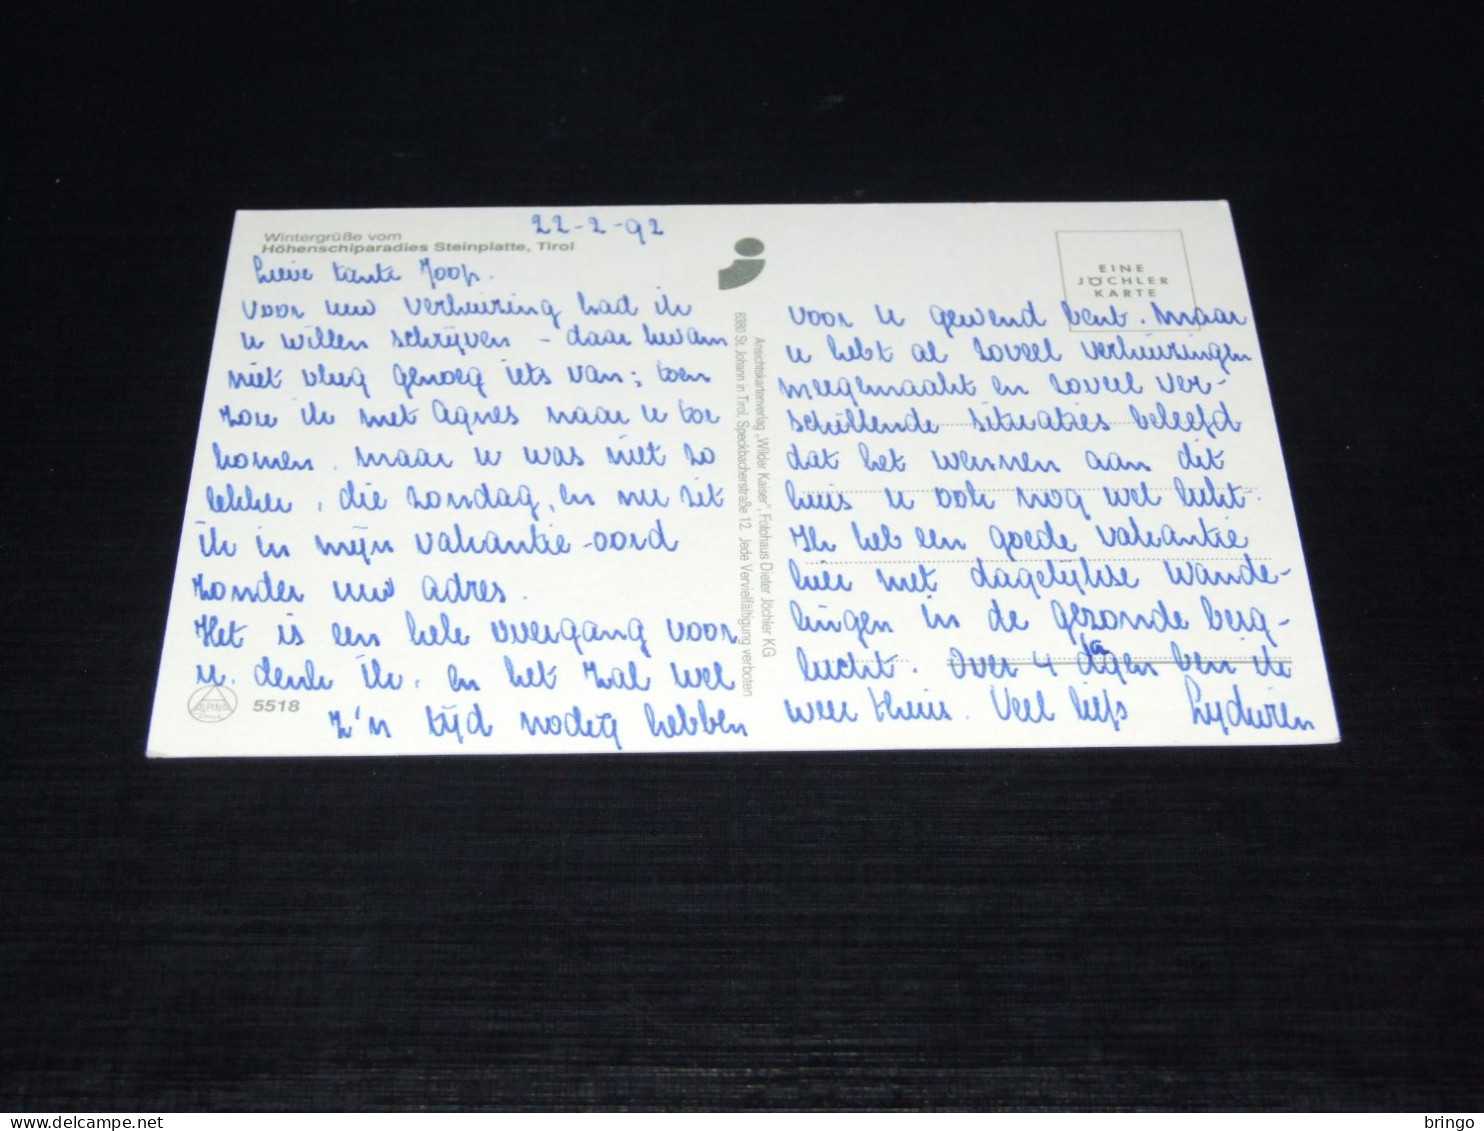 22-2-92
Wintergrüße vom
Höhenschiparadies Steinplatte, Tirol
Lieve tante Joop.
Voor uw verhuizing had ik
u willen schrijven - daar kwam
niet vlug genoeg iets van; toen
zou ik met Agnes naar u toe
komen. maar u was niet zo
lekker, die zondag, en nu zit
ik in mijn vakantie-oord
zonder uw adres.
Het is een hele overgang voor
u. denk ik, en het zal wel
z'n tijd nodig hebben
ALPINA
5518
Ansichtskartenverlag „Wilder Kaiser", Fotohaus Dieter Jöchler KG
6380 St. Johann in Tirol, Speckbacherstraße 12. Jede Vervielfältigung verboten
EINE
JÖCHLER
KARTE
voor u gewend bent. Maar
u hebt al zoveel verhuizingen
meegemaakt en zoveel ver-
schillende situaties beleefd
dat het wennen aan dit
huis u ook nog wel lukt.
Ik heb een goede vakantie
hier met dagelijkse wande-
lingen in de gezonde berg-
lucht. Over 4 dagen ben ik
weer thuis. Veel liefs
bringo